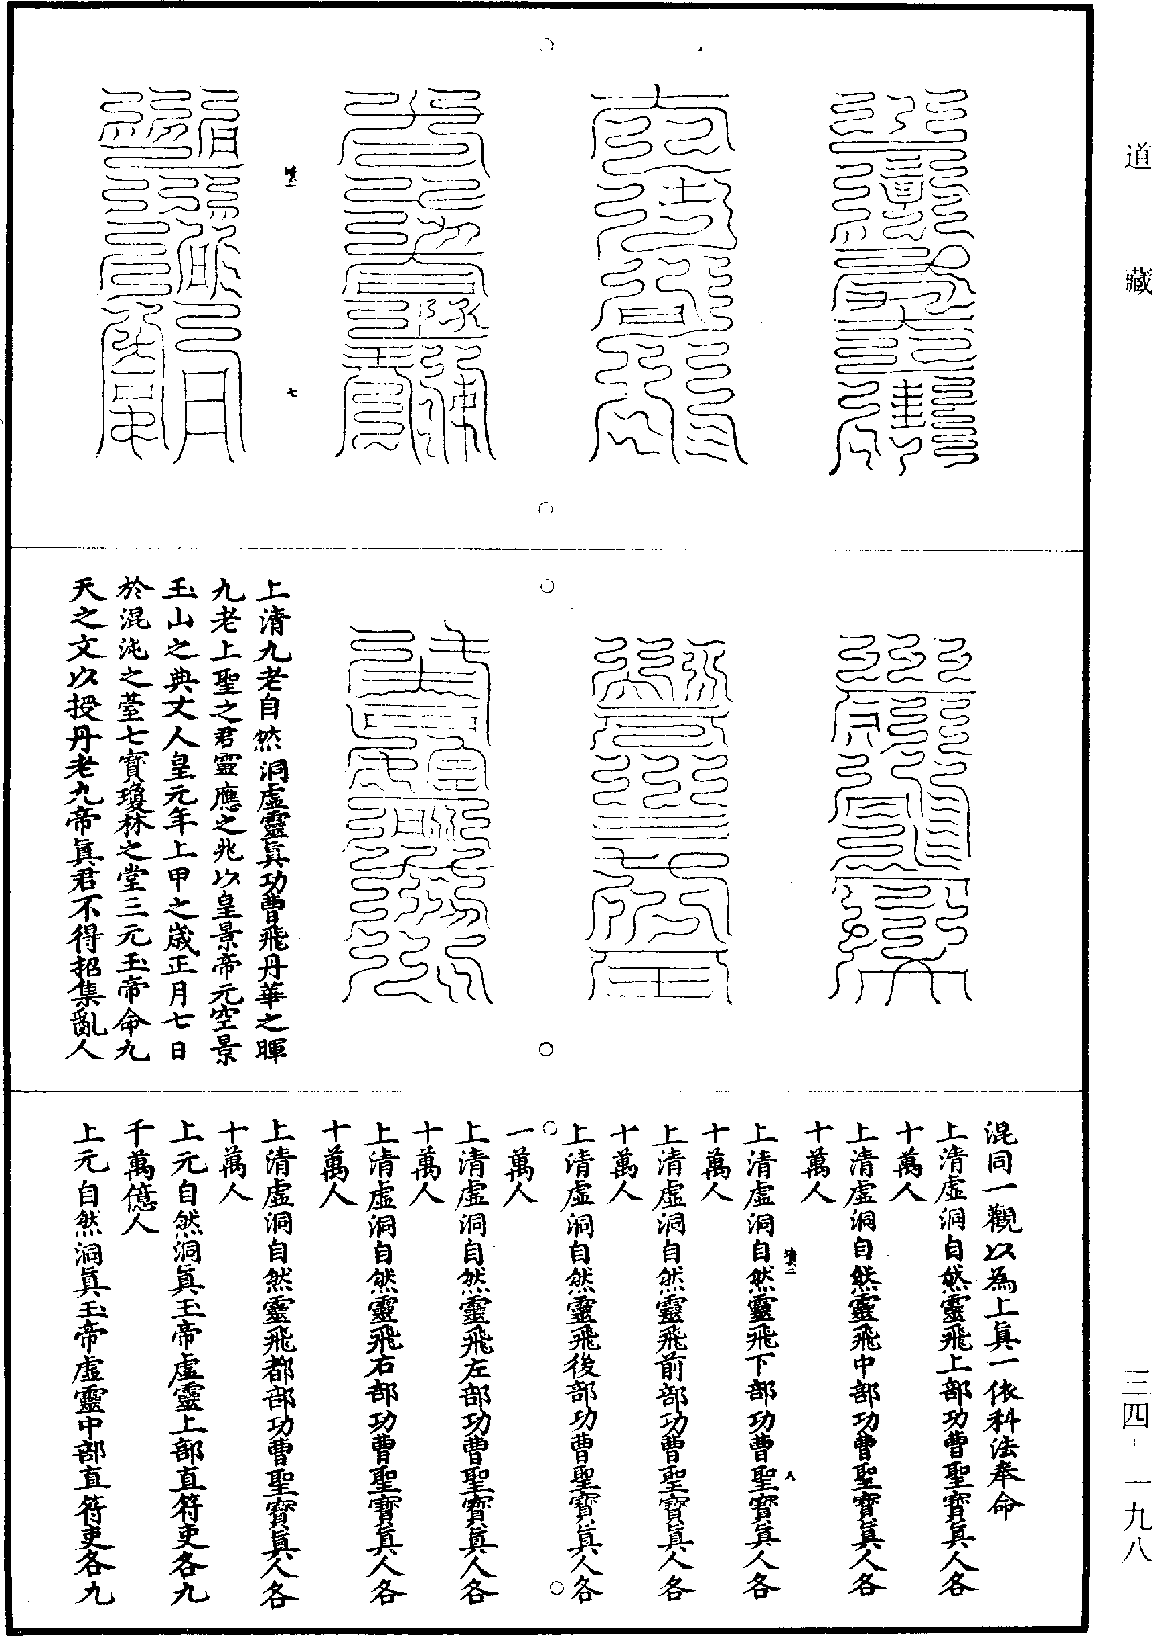 道藏
三四-一九八
七
上清九老自然洞虛靈真功曹飛丹華之暉
九老上聖之君靈應之兆以皇景帝元空景
玉山之典丈人皇元年上甲之歲正月七日
於混沌之臺七寶瓊林之堂三元玉帝命九
天之文以授丹老九帝真君不得招集亂人
混同一觀以為上真一依科法奉命
上清虛洞自然靈飛上部功曹聖寶真人各
十萬人
上清虛洞自然靈飛中部功曹聖寶真人各
十萬人
八
上清虛洞自然靈飛下部功曹聖寶真人各
十萬人
上清虛洞自然靈飛前部功曹聖寶真人各
十萬人
上清虛洞自然靈飛後部功曹聖寶真人各
一萬人
上清虛洞自然靈飛左部功曹聖寶真人各
十萬人
上清虛洞自然靈飛右部功曹聖寶真人各
十萬人
上清虛洞自然靈飛都部功曹聖寶真人各
十萬人
上元自然洞真玉帝虛靈上部直符吏各九
千萬億人
上元自然洞真玉帝虛靈中部直符吏各九